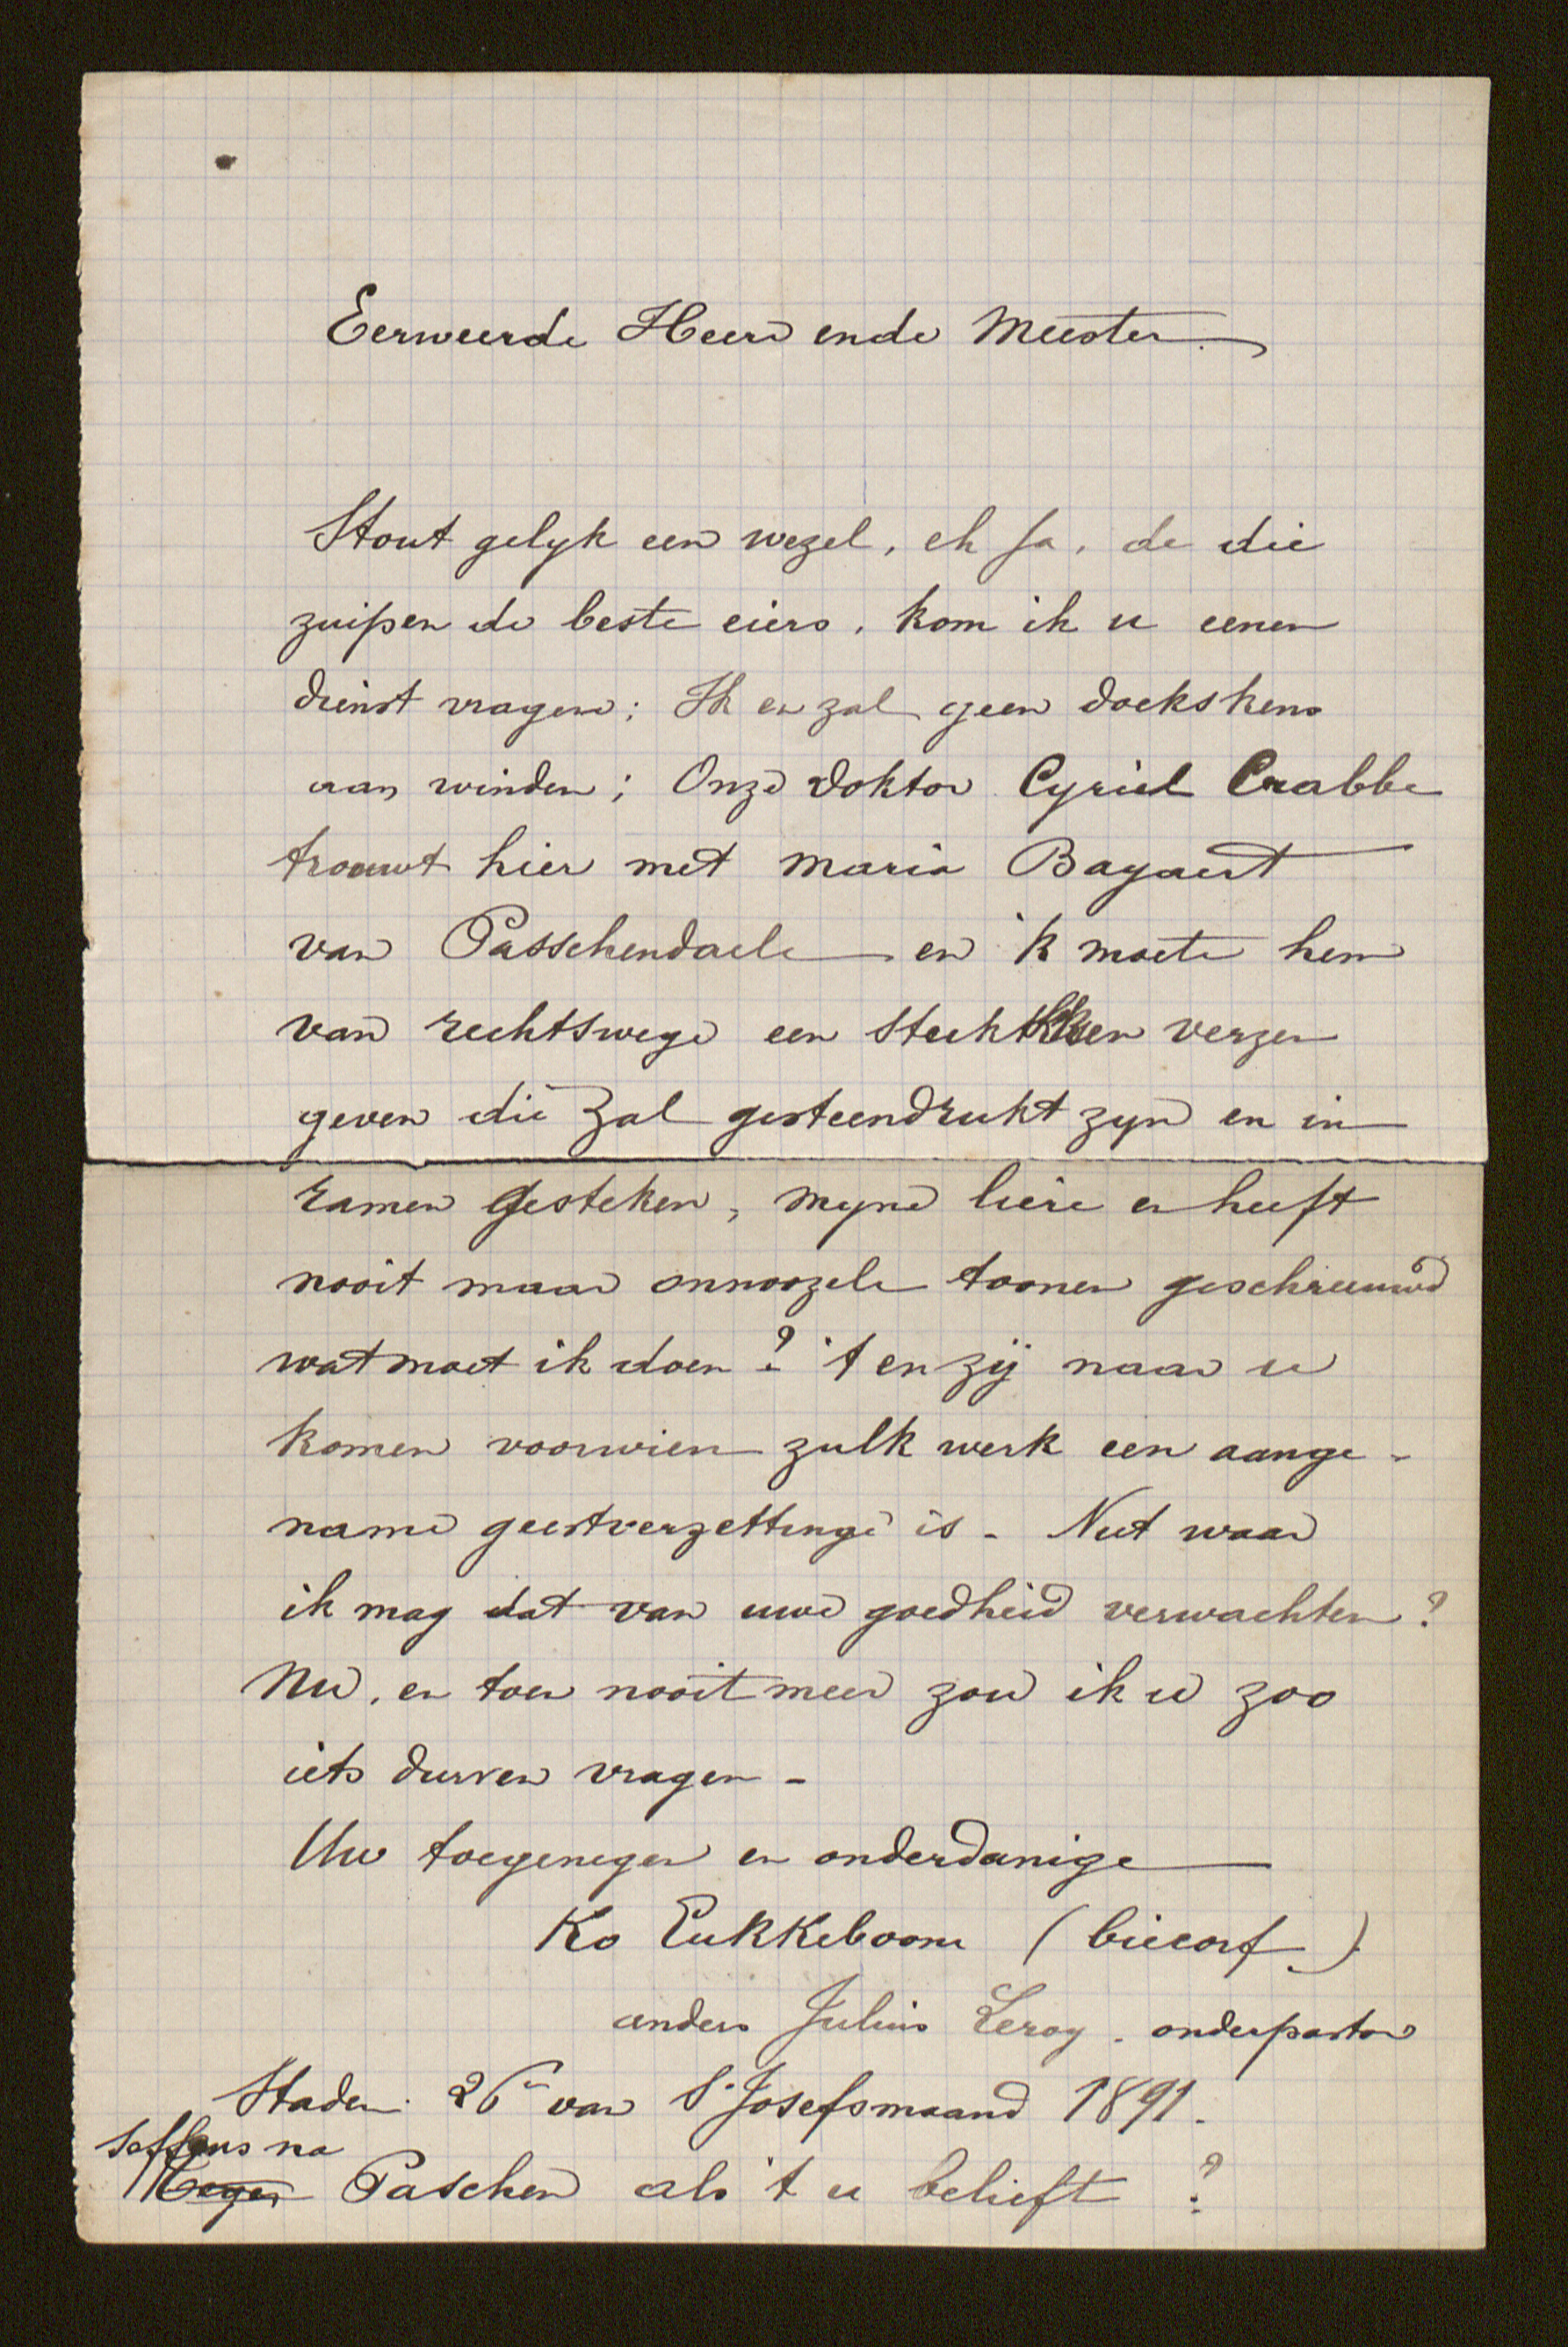 Eerweerde Heer ende Meester.
Stout gelyk een wezel, eh ja, de die
zuipen de beste eiers, kom ik u eenen
dienst vragen: Ik en zal geen doekskens
aan winden; Onze doktor Cyriel Crabbe
trouwt hier met Maria Bayaert
van Passchendaele en 'k moete hem
van rechtswege een stuksken verzen
geven die zal gesteendrukt zyn en in
ramen gesteken, myne liere en heeft
nooit maar onnoozele toonen geschreeuwd
wat moet ik doen? 't en zij naar u
komen voor wien zulk werk een aange-
name geestverzettinge is - Niet waar
ik mag dat van uwe goedheid verwachten?
Nu, en toen nooit meer zou ik u zoo
iets durven vragen -
Uw toegenegen en onderdanige
Ko Eukkeboom (biecorf)
anders Julius Leroy. onderpastor
Staden 26n van St Josefsmaand 1891.
seffens na
Tegen Paschen als 't u belieft?